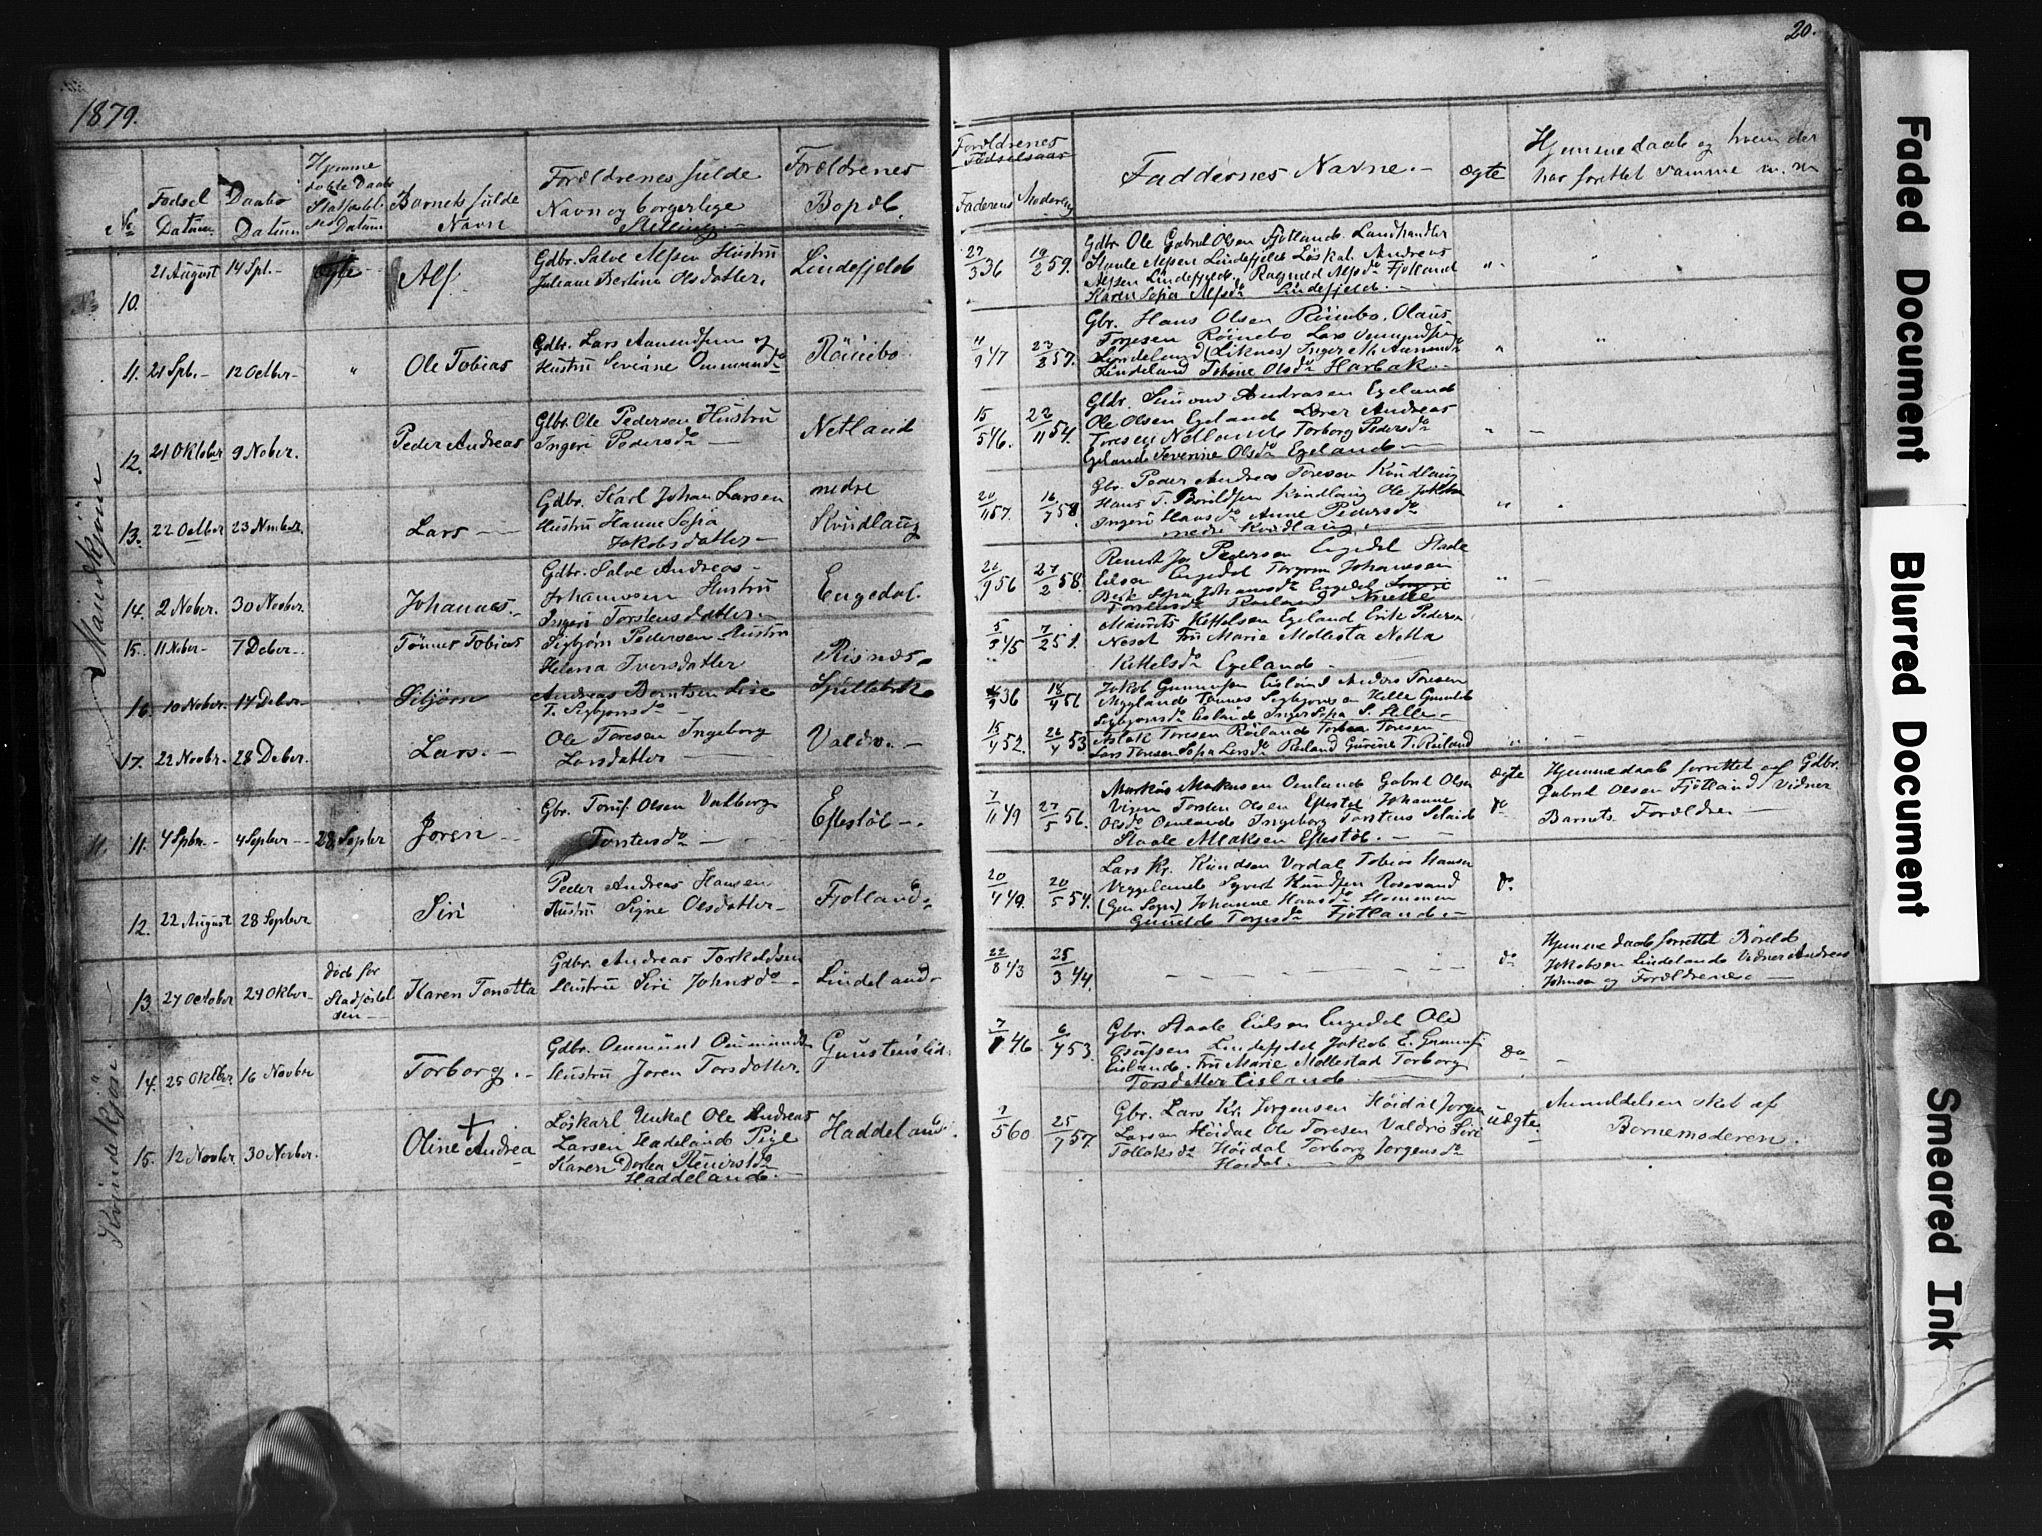 20.
1879.
No
Fødsel Datum
Daabs Datum
Hjemme døbte Daabs Stadfæstelses Datum
Barnets fulde Navn
Forældrenes fulde Navn og borgerlige Stilling.
Forældrenes Bopæl.
Forældrenes Fødselsaar
Faderens
Moderens
Faddernes Navne.-
Ægte
Hjemmedaab og hvem der har forettet samme m. m
Mandkjøn
10.
21 August
14 Spt.-
ægte
Alf.
Gdbr. Salve Alfsen Hustru
Juliane Bertine Olsdatter.
Lindefjeld
27/3 36
19/2 59.
Gdbr Ole Gabriel Olsen Fjotland. Landhandler
Staale Alfsen Lindefjeld Løskal. Andreas
Alfsen Lindefjeld. Ragnild Alfsdr Fjotland
Karen Sofia Alfsdr Lindefjeld.-
11.
21 Spb.-
12 Octber-
Ole Tobias
Gdbr. Lars Aamundsen og
Hustru Severine Ommundsdr
Røinebo
/9 47
23/2 57.
Gbr. Hans Olsen Røinebo. Olaus
Torjesen Røinebo Lars
Lindeland (Liknes) Inger M. Aamundsdr
Lindeland Tobine Olsdr Harbak.-
12.
21 Oktober
9 Nober.
Peder Andreas
Gbr. Ole Pedersen Hustru
Ingeri Pedersdr
Netland
15/5 46.
22/11 54.
Gdbr. Simon Andreasen Egeland
Ole Olsen Egeland Andreas
Toresen Netland Torborg Pedersdr
Egeland Severine Olsdr Egeland
13.
22 Octber
23 Nvnber.
Lars
Gdbr. Karl Johan Larsen
Hustru Hanne Sofia
Jakobsdatter-
nedre
Kvindlaug
20/11 57.
16/7 58
Gbr. Peder Andreas Toresen Kvindlaug
Hans T. Kvindlaug Ole Jakobsen
Ingeri Hansdr Anne Pedersdr
nedre Kvindlaug.
14.
2 Nober.
30 Novber.
Johannes.
Gdbr. Salve Andreas
Johannesen Hustru
Ingeri Torstensdatter
Engedal.
21/9 56
27/2 58.
Pedersen Engedal Staale
Eilsen Engedal Torgrim Johannesen
Sofia Johannesdr Engedal
Torstensdr Røiland
15.
11 Nober-
7 Deber.
Tønnes Tobias
Sigbjørn Pedersen Hustru
Helena Iversdatter
Risnes.
5/3 45
7/2 51.
Maurits Kittelsen Egeland Erik Pedersen
Neset Fru Marie Mollestad Netta
Kittelsdr Egeland
16.
10 Nober.
14 Deber
Sibjørn
Andreas Berntsen Lise
T. Sigbjørnsdr
36
18/4 56
Jakob Gunnufsen Eisland Anders Toresen
Myglands Tønnes Sigbjørnsen Helle Gunild
Sigbjørnsdr Eisland Inger Sofia S. Helle.
17.
22 Novbr.
28 Deber.
Lars.
Ole Toresen Ingeborg
Larsdatter
Valdro.
15/4 52.
26/4 53
Aslak Toresen Røiland Tobias Toresen
Lars Toresen Sofia Larsdr Røiland Gurine T. Røiland
Kvindekjøn.
11.
4 Spbr.-
4 Septber
28 Septbr
Jøren
Gbr. Toruf Olsen Valborg
Torstensdr
Eftestøl
7/11 49
27/5 56.
ægte
do
Markus Makusen Omland Gabriel Olsen
Vigen Torsten Olsen Eftestøl Johanne
Olsdr Omland Ingeborg Torstens Seland
Staale Maksen Eftestøl.
Hjemmedaab forrettet af Gdbr.
Gabriel Olsen Fjotland Vidner
Barnets Forældre
12.
22 August
28 Septber
Siri
Peder Andreas Hansen
Hustru Signe Olsdatter-
Fjotland
20/4 49.
20/5 54.
Lars Kr. Knudsen Vordal Tobias Hansen
Veggeland Syvert Knudsen Rosseland
(Gen Sogn) Johanne Hansdr Hommen
Gunild Torjusdr Fjotland.-
do
13.
27 October
29 Oktber-
død før
Stadfæstel
sen
Karen Tonetta
Gdbr. Andreas Torkeldsen
Hustru Siri Johnsdr
Lindeland
22/8 43
25/3 44.
do
Hjemmedaab forrettet Børeld
Jakobsen Lindeland Vidner Andreas
Johnsen og Forældrene
14.
25 Oktber
16 Novber
Torborg.
Gdbr. Ommund Ommundsen
Hustru Jøren Torsdatter.
46
6/4 53.
Gbr. Staale Eilsen Engedal Ole
Lindefjeld Jakob E. Gunnufs
Eisland. Fru Marie Mollestad Torborg
Torsdatter Eisland
do
15.
12 Novber
30 Novber.
Oline Andrea
Løskarl Unkal Ole Andreas
Larsen Hadeland Pige
Karen Dortea Reierstdr
Haddeland.
Haddeland
7/5 60
25/7 57.
Gbr. Lars Kr. Jørgensen Høidal Jørgen
Larsen Høidal Ole Toresen Valdro Siri
Tollaksdr Høidal Torborg Jørgensdr
Høidal.
uægte
Anmeldelsen sket af
Barnemoderen.
Faded Document
Blurred Document
Smeared Ink